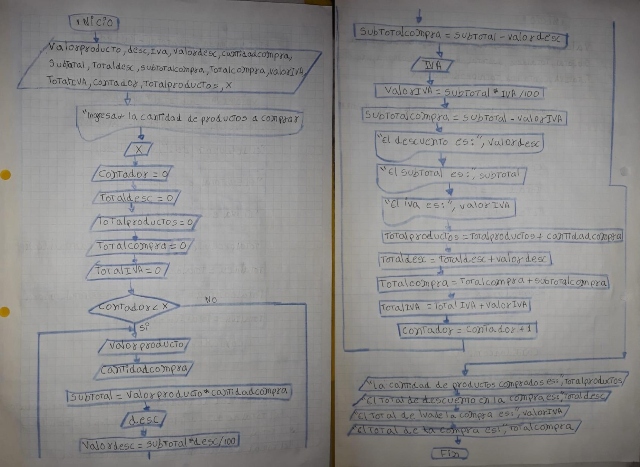 INICIO
Valorproducto, desc, Iva, valordesc, cantidadcompra,
Subtotal, Totaldesc, subtotalcompra, Totalcompra, valorIVA
TotalIVA, contador, Totalproductos, X
"Ingresar la cantidad de productos a comprar
X
Contador = 0
Totaldesc = 0
Totalproductos = 0
Totalcompra = 0
TotalIVA = 0
Contador < X
NO
Si
Valorproducto
Cantidadcompra
Subtotal = Valorproducto * cantidadcompra
desc
Valordesc = subtotal * desc/100
SubTotalcompra = SubTotal - valordesc
IVA
ValorIVA = SubTotal * IVA/100
SubTotalcompra = SubTotal - valorIVA
"El descuento es:", valordesc
"El subtotal es:", subtotal
"El iva es:", valorIVA
Totalproductos = Totalproductos + cantidadcompra
Totaldesc = Totaldesc + valordesc
Totalcompra = Totalcompra + subtotalcompra
TotalIVA = Total IVA + valorIVA
Contador = Contador + 1
"La cantidad de productos comprados es:", Totalproductos
"El total de descuento en la compra es:", Totaldesc
"El total de la compra es:", valorIVA
"El total de la compra es:", Totalcompra
Fin